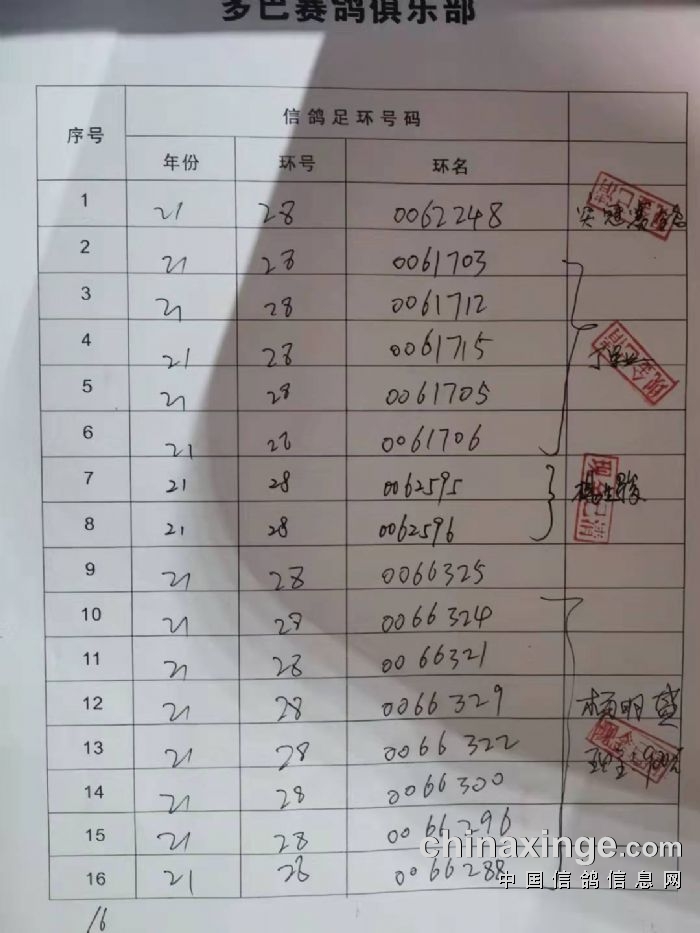 多巴赛鸽俱乐部
序号 信鸽足环号码
年份 环号 环名
1 21 28 0062248
2 21 28 0061703
3 21 28 0061712
4 21 28 0061715
5 21 28 0061705
6 21 28 0061706
7 21 28 0062595
8 21 28 0062596
9 21 28 0066325
10 21 28 0066324
11 21 28 0066321
12 21 28 0066329 杨明
13 21 28 0066322 现金 900元
14 21 28 0066300
15 21 28 0066296
16 21 28 0066288
chinaxinge.com
中国信鸽信息网
16